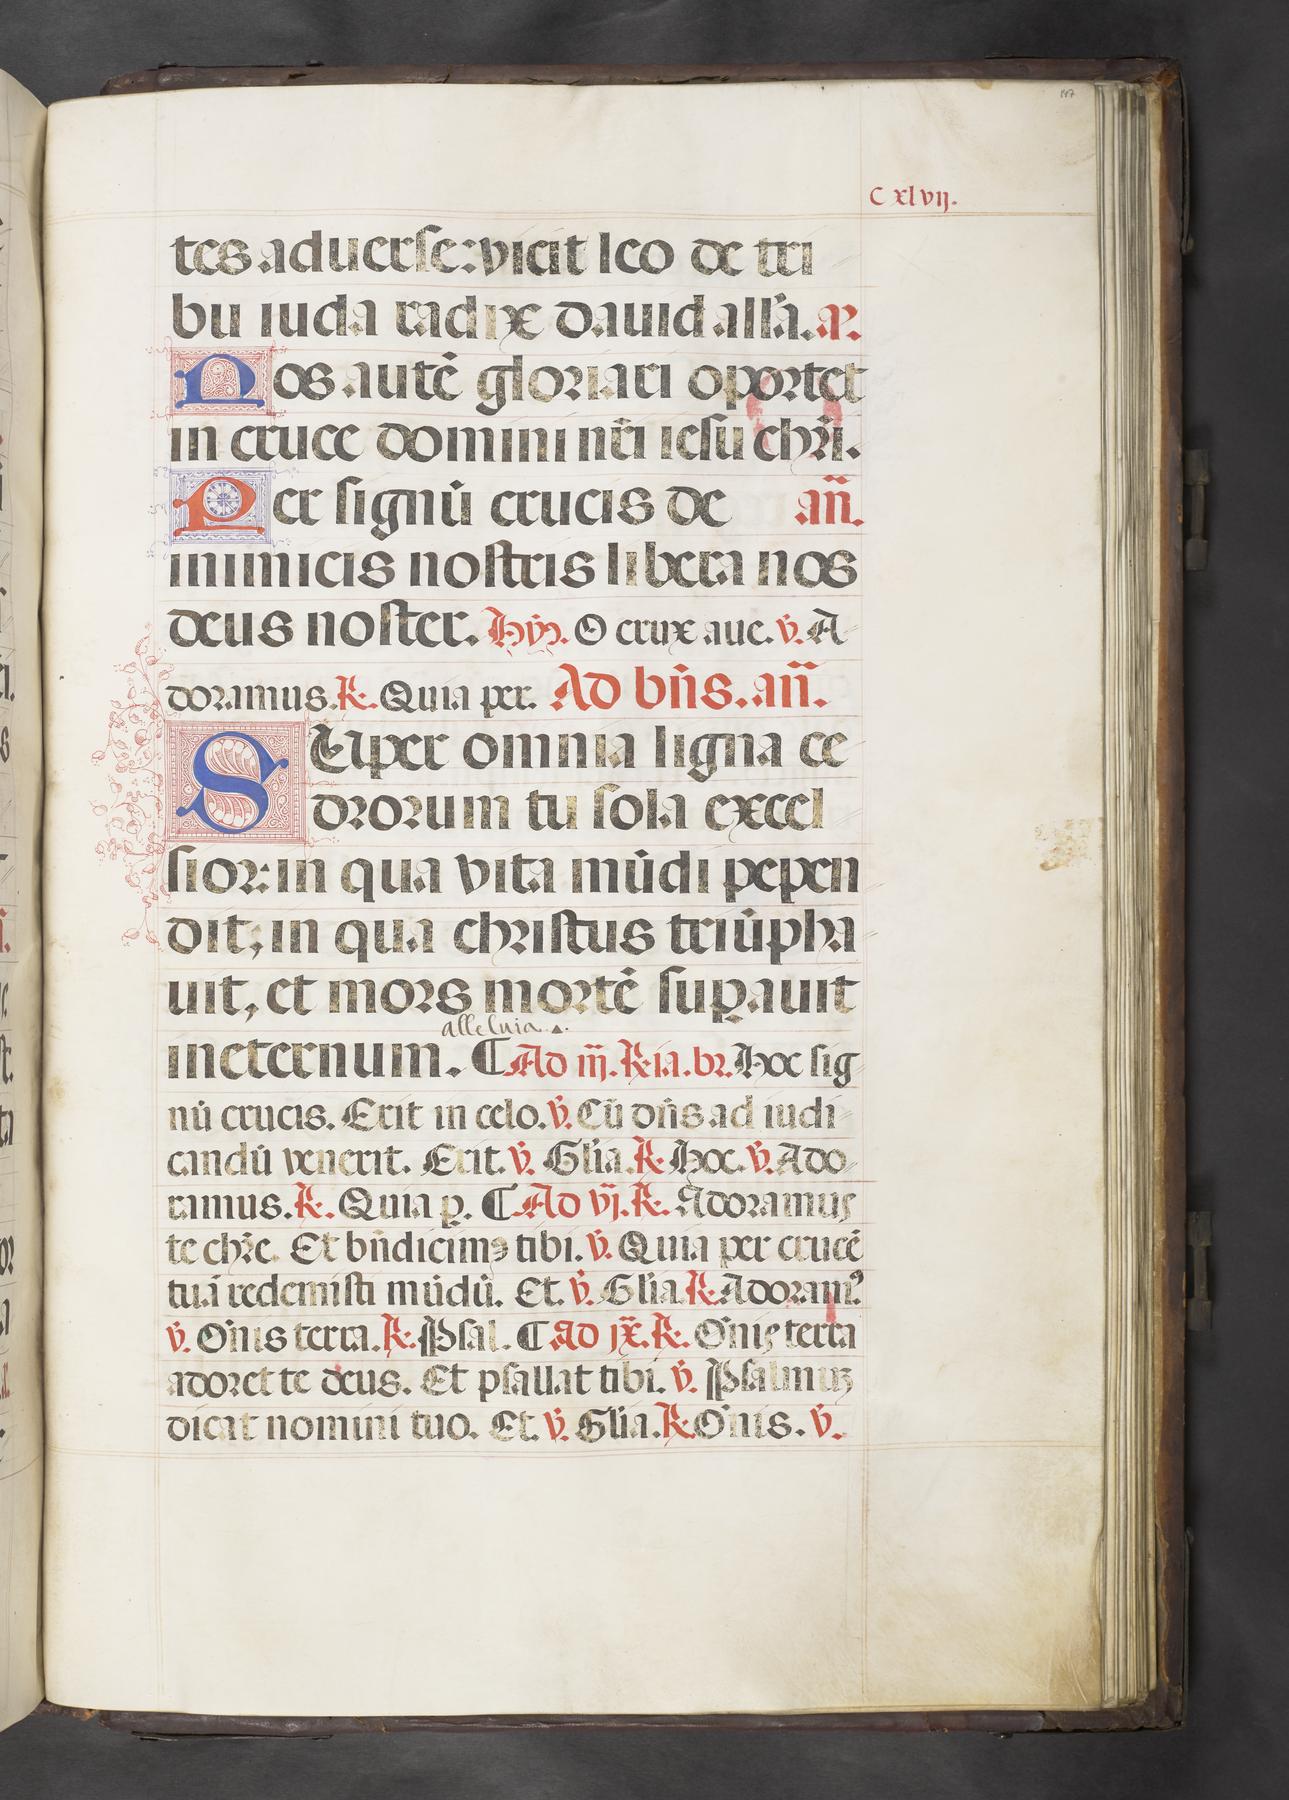 147
C xlvij.
tes aduerse: vicit leo de tri
bu iuda radix dauid all'a. a͞r.
Nos autē gloriari oportet
in cruce domini nr̄i iesu chr̄i.
Per signū crucis de an̄.
inimicis nostris libera nos
deus noster. Hȳn. O crux aue. v̄. A
doramus. ℟. Quia per. Ad bn̄s. an̄.
SUper omnia ligna ce
drorum tu sola excel
sior: in qua vita mūdi pepen
dit, in qua christus triūpha
uit, et mors mortē suꝑauit
alleluia.
ineternum. ¶ Ad iij. ℟ia. br. Hoc sig
nū crucis. Erit in celo. v̄. Cū dn̄s ad iudi
candū venerit. Erit. v̄. Gl̄ia. ℟. Hoc. v̄. Ado
ramus. ℟. Quia ꝑ. ¶ Ad vj. ℟. Adoramus
te chr̄e. Et bn̄dicimꝰ tibi. v̄. Quia per crucē
tuā redemisti mūdū. Et. v̄. Gl̄ia. ℟. Adoramꝰ.
v̄. Om̄is terra. ℟. Psal. ¶ Ad ix. ℟. Om̄is terra
adoret te deus. Et psallat tibi. v̄. Psalmus
dicat nomini tuo. Et. v̄. Gl̄ia. ℟. Om̄is. v̄.